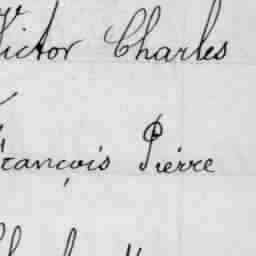 Victor Charles
François Pierre